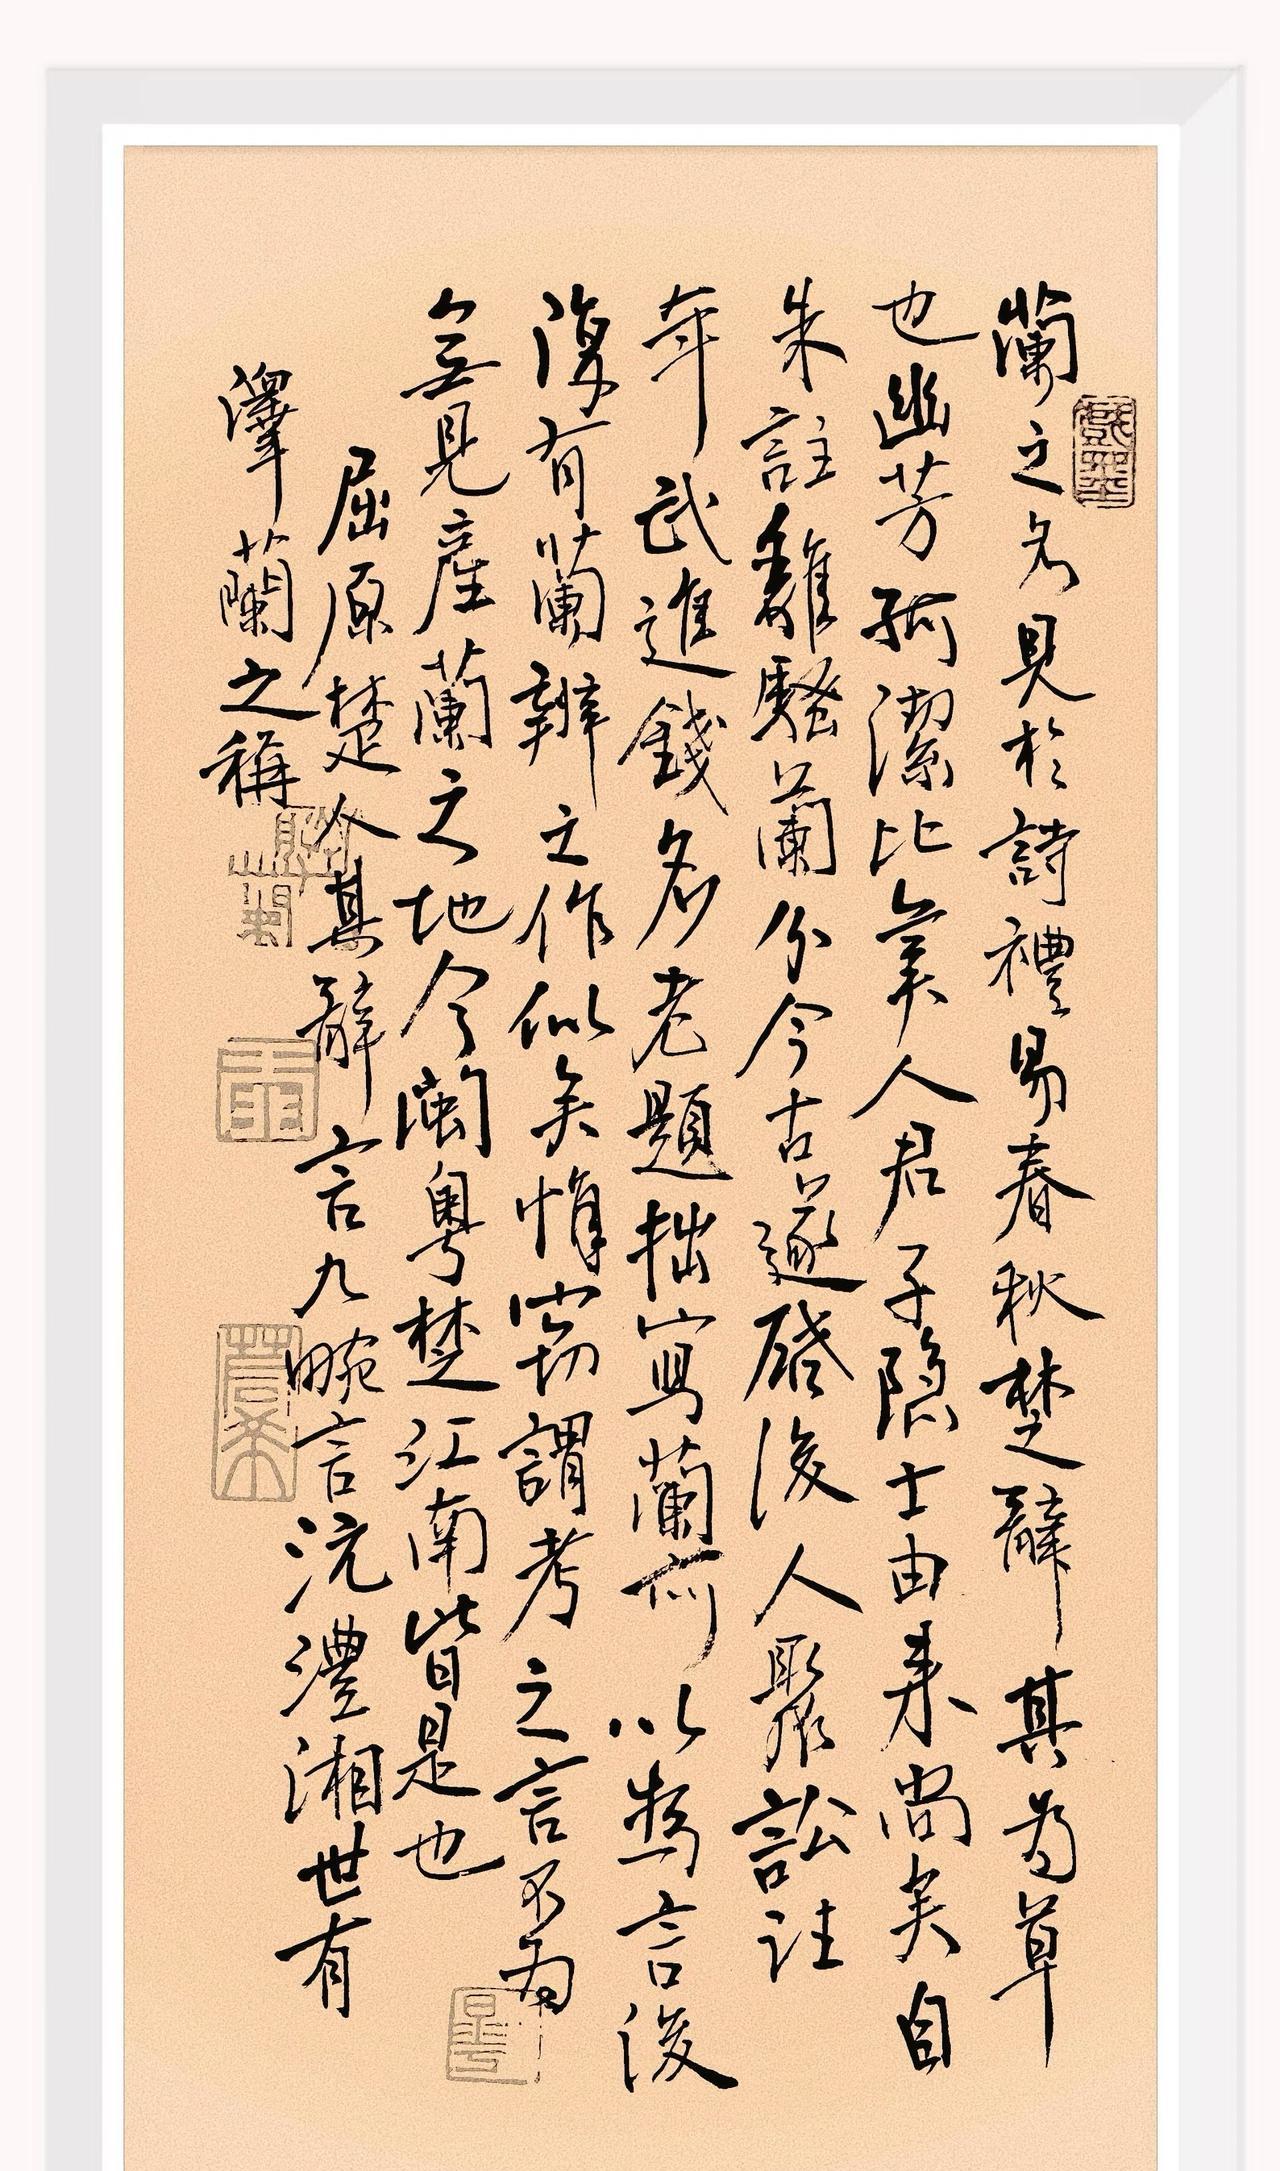 蘭之名見於詩禮易春秋楚辭其為草
也幽芳孤潔比美人君子隱士由來尚矣自
朱註離騷蘭分今古遂啟後人聚訟註
年武進錢名老題拙寫蘭以為言後
復有蘭辨之作似矣惜竊謂考之言不為
無見產蘭之地今閩粵楚江南皆是也
屈原楚人其辭言九畹言沅澧湘世有
澤蘭之稱